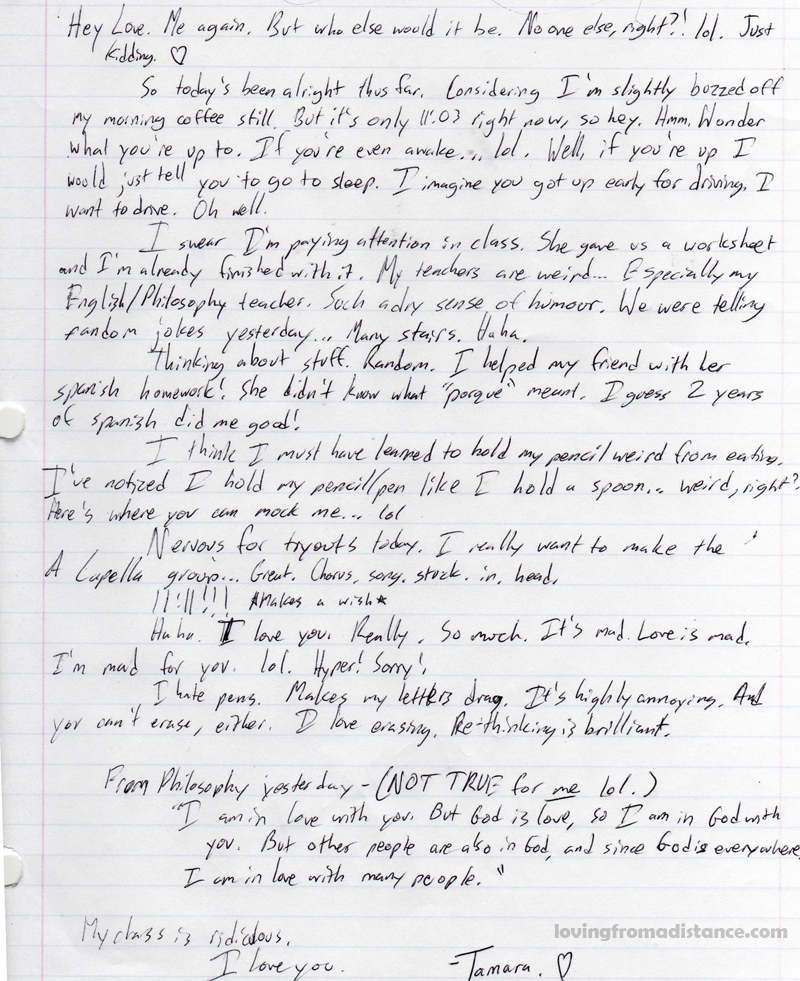 Hey Love. Me again. But who else would it be. No one else, right?! lol. Just
Kidding. ♡
So today's been alright thus far. Considering I'm slightly buzzed off
my morning coffee still. But it's only 11:03 right now, so hey. Hmm. Wonder
what you're up to. If you're even awake... lol. Well, if you're up I
would just tell you to go to sleep. I imagine you got up early for driving. I
want to drive. Oh well.
I swear I'm paying attention in class. She gave us a worksheet
and I'm already finished with it. My teachers are weird... Especially my
English/Philosophy teacher. Such a dry sense of humour. We were telling
random jokes yesterday... Many stairs. Haha.
Thinking about stuff. Random. I helped my friend with her
spanish homework! She didn't know what "porque" meant. I guess 2 years
of spanish did me good!
I think I must have learned to hold my pencil weird from eating.
I've notized I hold my pencil/pen like I hold a spoon... weird, right?
Here's where you can mock me... lol
Nervous for tryouts today. I really want to make the
A Capella group... Great. Chorus. song. stuck. in. head.
11:11!!! *Makes a wish*
Haha. I love you. Really. So much. It's mad. Love is mad.
I'm mad for you. lol. Hyper! Sorry!
I hate pens. Makes my letters drag. It's highly annoying. And
you can't erase, either. I love erasing. Re-thinking is brilliant.
From Philosophy yesterday - (NOT TRUE for me lol.)
"I am in love with you. But God is love, so I am in God with
you. But other people are also in God, and since God is everywhere,
I am in love with many people."
My class is ridiculous.
I love you. -Tamara. ♡
lovingfromadistance.com